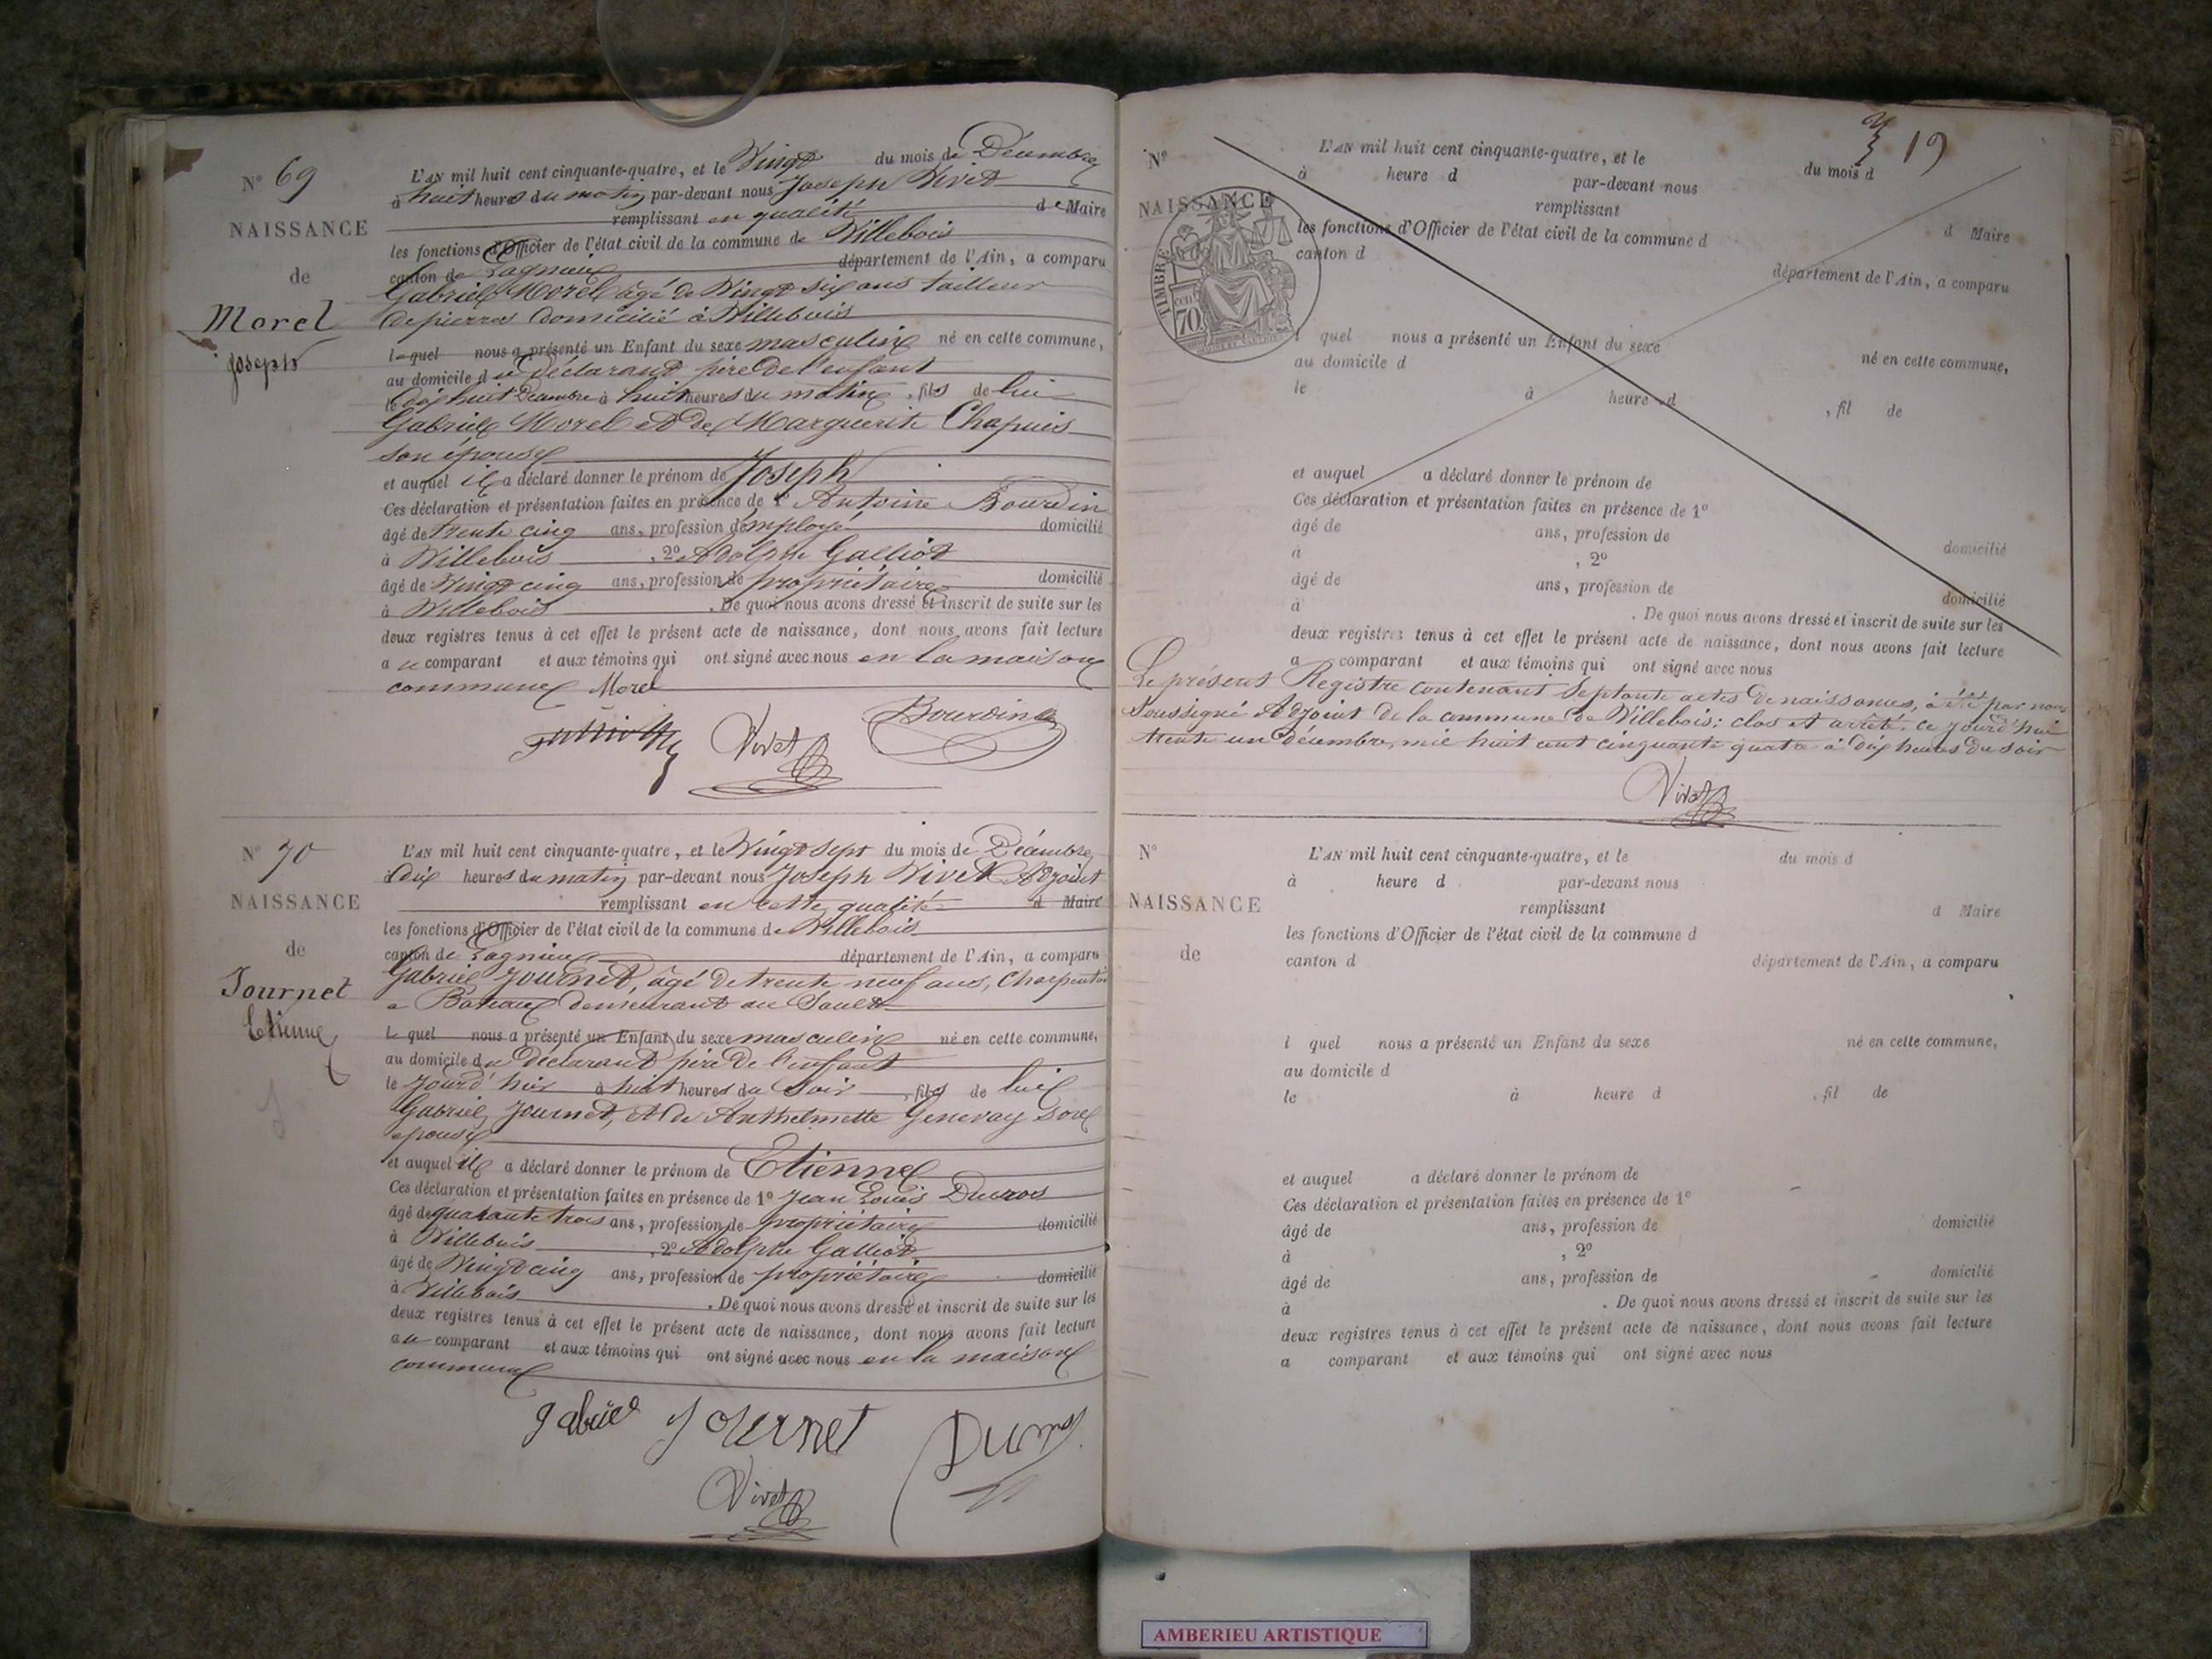 N° 69
NAISSANCE
de
Morel
Joseph
L'AN mil huit cent cinquante-quatre, et le Vingt du mois de Décembre
à huit heures du matin par-devant nous Joseph Vivet
remplissant en qualité de Maire
les fonctions d'Officier de l'état civil de la commune de Villebois
canton de Lagnieu département de l'Ain, a comparu
Gabriel Morel âgé de Vingt six ans tailleur
de pierres domicilié à Villebois
lequel nous a présenté un Enfant du sexe masculin né en cette commune,
au domicile du déclarant père de l'enfant
le dix huit Décembre à huit heures du matin, fils de lui
Gabriel Morel et de Marguerite Chapuis
son épouse
et auquel il a déclaré donner le prénom de Joseph
Ces déclaration et présentation faites en présence de 1° Antoine Bourdin
âgé de trente cinq ans, profession d'employé domicilié
à Villebois , 2° Adolphe Galliot
âgé de Vingt cinq ans, profession de propriétaire domicilié
à Villebois . De quoi nous avons dressé et inscrit de suite sur les
deux registres tenus à cet effet le présent acte de naissance, dont nous avons fait lecture
au comparant et aux témoins qui ont signé avec nous en la maison
commune Morel
Vivet Bourdin
N° 70
NAISSANCE
de
Journet
Etienne
L'AN mil huit cent cinquante-quatre, et le Vingt sept du mois de Décembre
à dix heures du matin par-devant nous Joseph Vivet Adjoint
remplissant en cette qualité d Maire
les fonctions d'Officier de l'état civil de la commune de Villebois
canton de Lagnieu département de l'Ain, a comparu
Gabriel Journet, âgé de trente neuf ans, Charpentier
a Bateaux demeurant au Sault
lequel nous a présenté un Enfant du sexe masculin né en cette commune,
au domicile du Déclarant père de l'enfant
le jourd'hui à huit heures du Soir, fils de lui
Gabriel Journet, et de Anthelmette Genevay son
épouse
et auquel il a déclaré donner le prénom de Etienne
Ces déclaration et présentation faites en présence de 1° Jean Louis Ducros
âgé de quarante trois ans, profession de propriétaire domicilié
à Villebois , 2° Adolphe Galliot
âgé de Vingt cinq ans, profession de propriétaire domicilié
à Villebois . De quoi nous avons dressé et inscrit de suite sur les
deux registres tenus à cet effet le présent acte de naissance, dont nous avons fait lecture
au comparant et aux témoins qui ont signé avec nous en la maison
commune
gabriel journet
Vivet
19
N°
NAISSANCE
TIMBRE
70
L'AN mil huit cent cinquante-quatre, et le du mois d
à heure d par-devant nous
remplissant d Maire
les fonctions d'Officier de l'état civil de la commune d
canton d département de l'Ain, a comparu
l quel nous a présenté un Enfant du sexe né en cette commune,
au domicile d
le à heure d , fil de
et auquel a déclaré donner le prénom de
Ces déclaration et présentation faites en présence de 1°
âgé de ans, profession de domicilié
à , 2°
âgé de ans, profession de domicilié
à . De quoi nous avons dressé et inscrit de suite sur les
deux registres tenus à cet effet le présent acte de naissance, dont nous avons fait lecture
a comparant et aux témoins qui ont signé avec nous
Le présent Registre contenant Septante actes de naissances, à été par nous
Soussigné Adjoint de la commune de Villebois; clos et arrêté, ce jourd'hui
trente un Décembre, mil huit cent cinquante quatre à dix heures du soir
Vivet
N°
NAISSANCE
de
L'AN mil huit cent cinquante-quatre, et le du mois d
à heure d par-devant nous
remplissant d Maire
les fonctions d'Officier de l'état civil de la commune d
canton d département de l'Ain, a comparu
l quel nous a présenté un Enfant du sexe né en cette commune,
au domicile d
le à heure d , fil de
et auquel a déclaré donner le prénom de
Ces déclaration et présentation faites en présence de 1°
âgé de ans, profession de domicilié
à , 2°
âgé de ans, profession de domicilié
à . De quoi nous avons dressé et inscrit de suite sur les
deux registres tenus à cet effet le présent acte de naissance, dont nous avons fait lecture
a comparant et aux témoins qui ont signé avec nous
AMBERIEU ARTISTIQUE